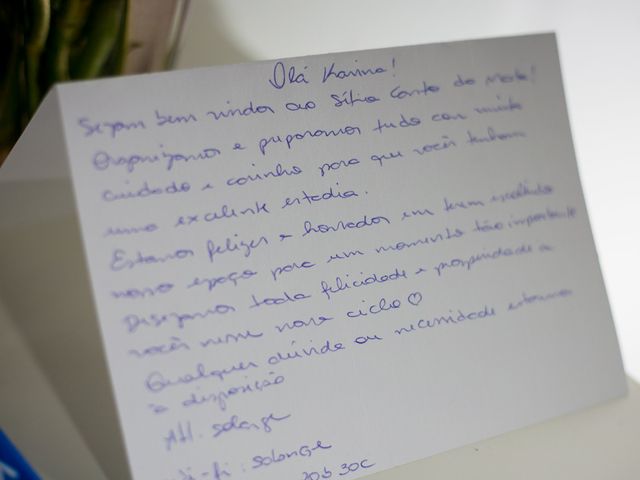 Olá Karina!
Sejam bem vindos ao Sítio Canto da Mata!
Organizamos e preparamos tudo com muito
cuidado e carinho para que vocês tenham
uma excelente estadia.
Estamos felizes e honrados em terem escolhido
nosso espaço para um momento tão importante
Desejamos toda felicidade e prosperidade a
vocês nesse novo ciclo ♡
Qualquer dúvida ou necessidade estamos
à disposição
Att. Solange
Wi-fi: Solange